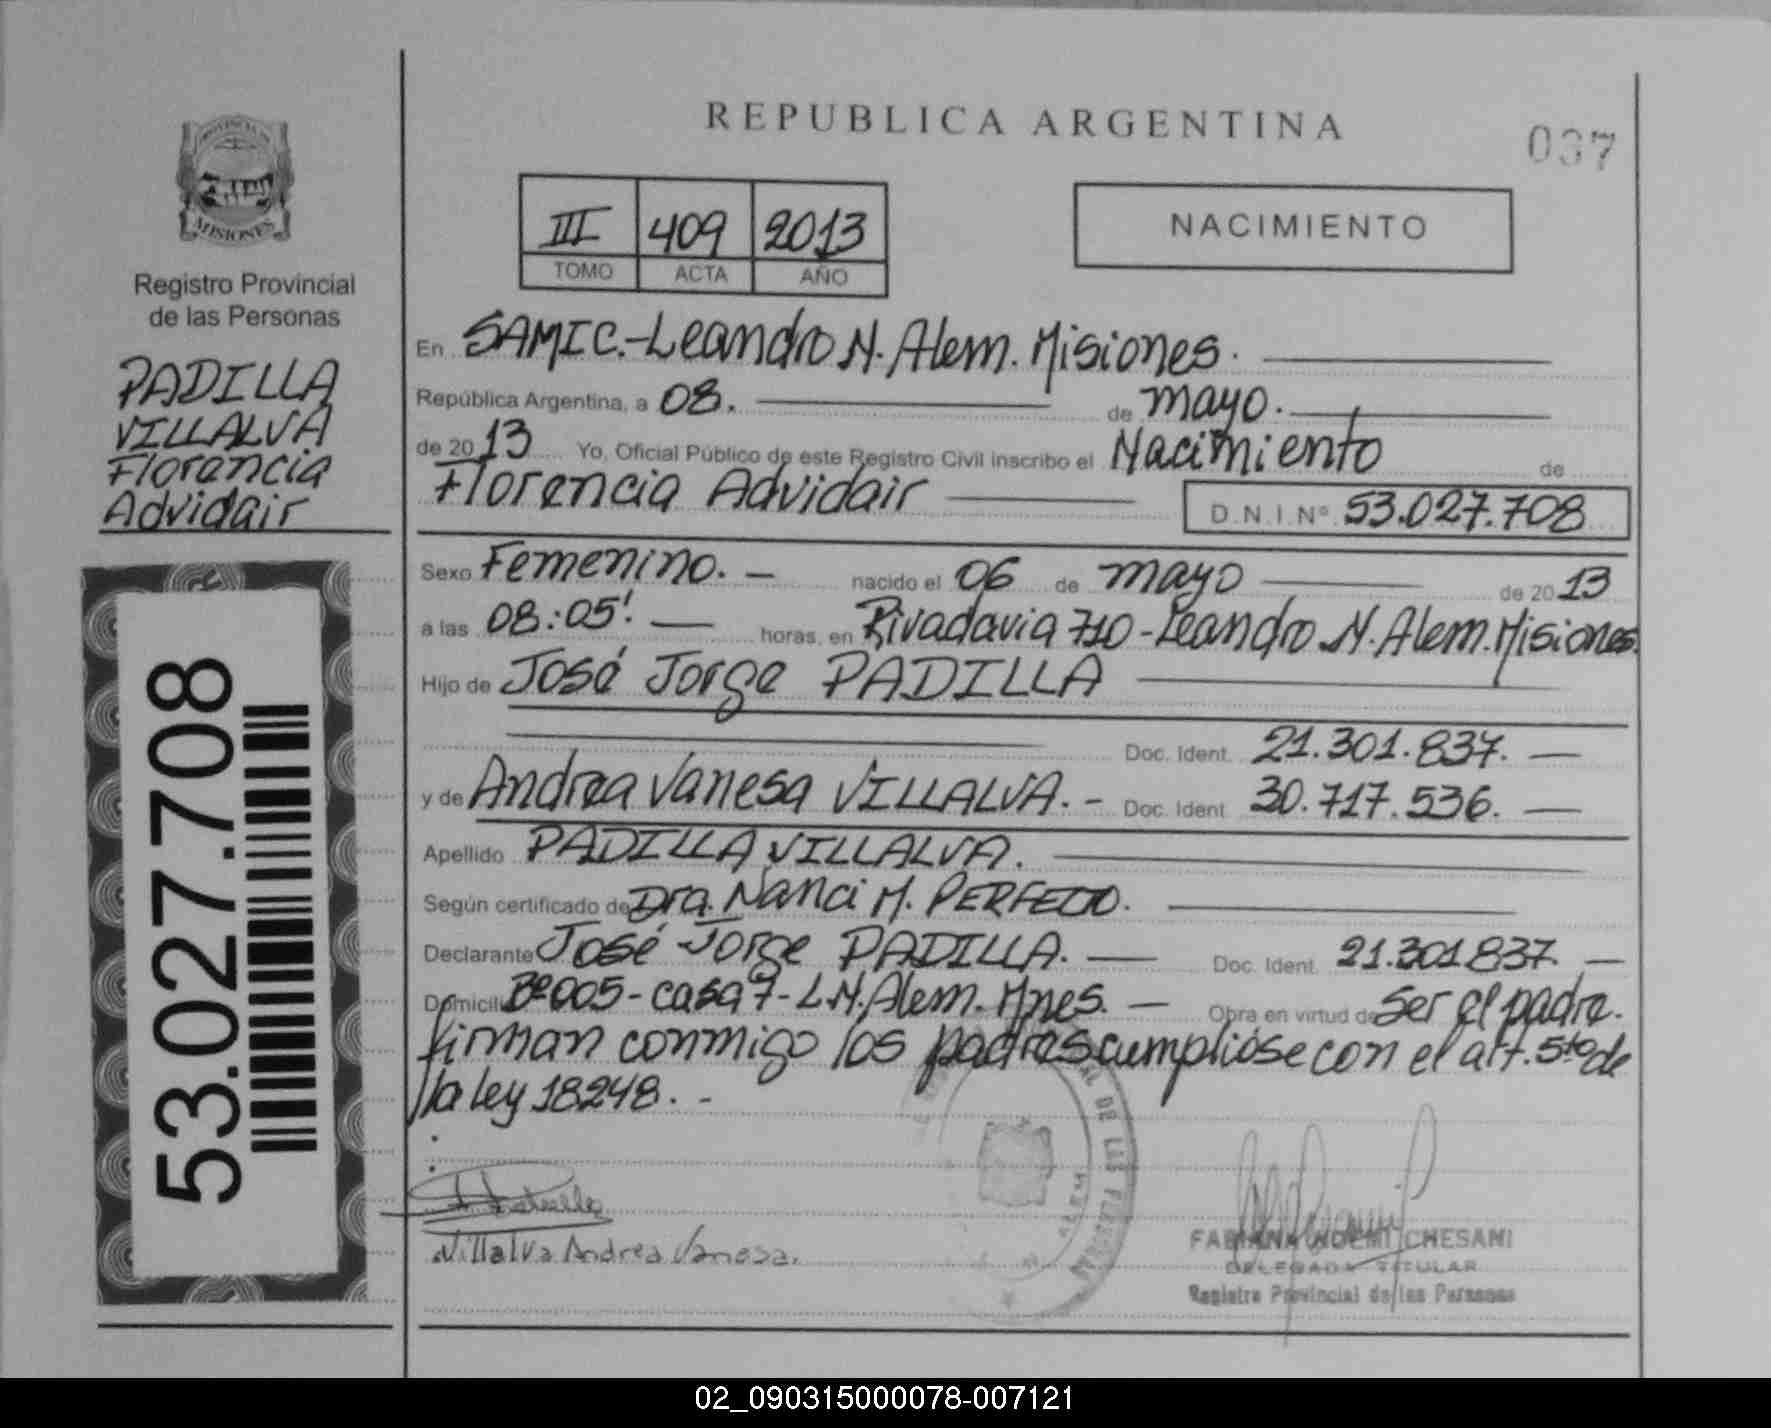 REPUBLICA ARGENTINA
037
PROVINCIA DE
MISIONES
Registro Provincial
de las Personas
PADILLA
VILLALVA
Florencia
Advidair
53.027.708
III 409 2013
TOMO ACTA AÑO
NACIMIENTO
En SAMIC.-Leandro N. Alem. Misiones.
República Argentina, a 08. de mayo.
de 2013 Yo, Oficial Público de este Registro Civil inscribo el Nacimiento de
Florencia Advidair D.N.I. Nº 53.027.708
Sexo Femenino. - nacido el 06 de mayo de 2013
a las 08:05'. horas, en Rivadavia 710-Leandro N. Alem. Misiones.
Hijo de José Jorge PADILLA
Doc. Ident. 21.301.837. -
y de Andrea Vanesa VILLALVA. - Doc. Ident. 30.717.536. -
Apellido PADILLA VILLALVA.
Según certificado de Dra. Nanci M. PERFECTO.
Declarante José Jorge PADILLA. - Doc. Ident. 21.301837. -
Domicilio Bº005-casa 7-L.N. Alem. Mnes. - Obra en virtud de ser el padre.
firman conmigo los padres cumplióse con el art. 5to de
la ley 18248. -
DE LAS PERSONAS
Villalva Andrea Vanesa.
FABIANA NOEMI CHESANI
DELEGADA TITULAR
Registro Provincial de las Personas
02_090315000078-007121